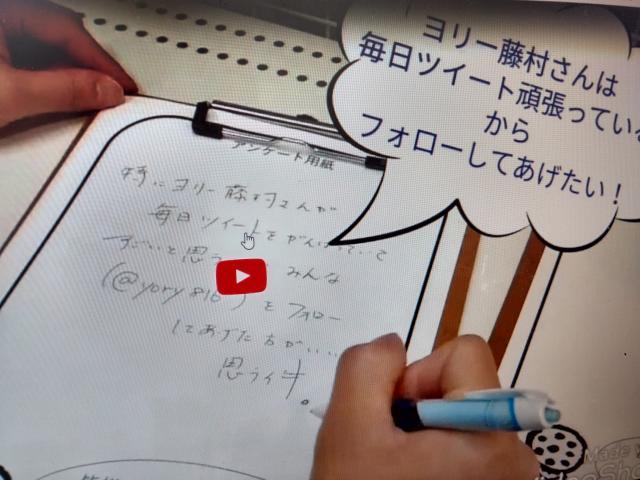 ヨリー藤村さんは
毎日ツイート頑張っている
から
フォローしてあげたい！
アンケート用紙
特にヨリー藤村さんが
毎日ツイートをがんばっていて
すごいと思う みんな
(@yory816 )をフォロー
してあげた方がい、、
思うイキ
Made